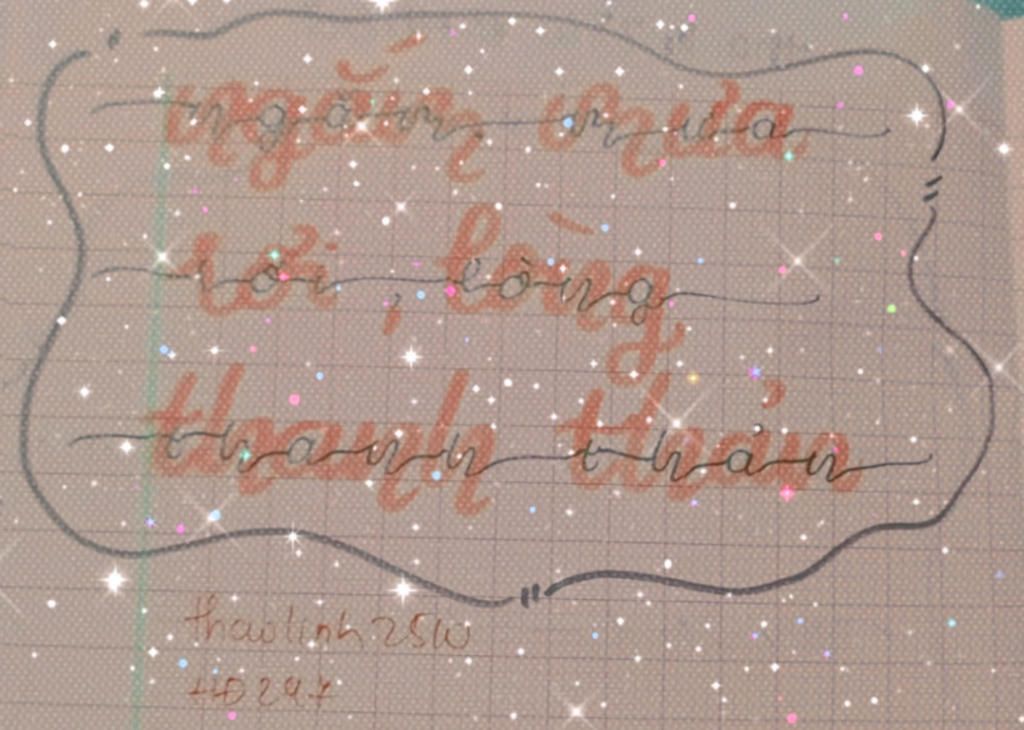 ngắm mưa
rơi , lòng
thanh thản
thaolinh 25w